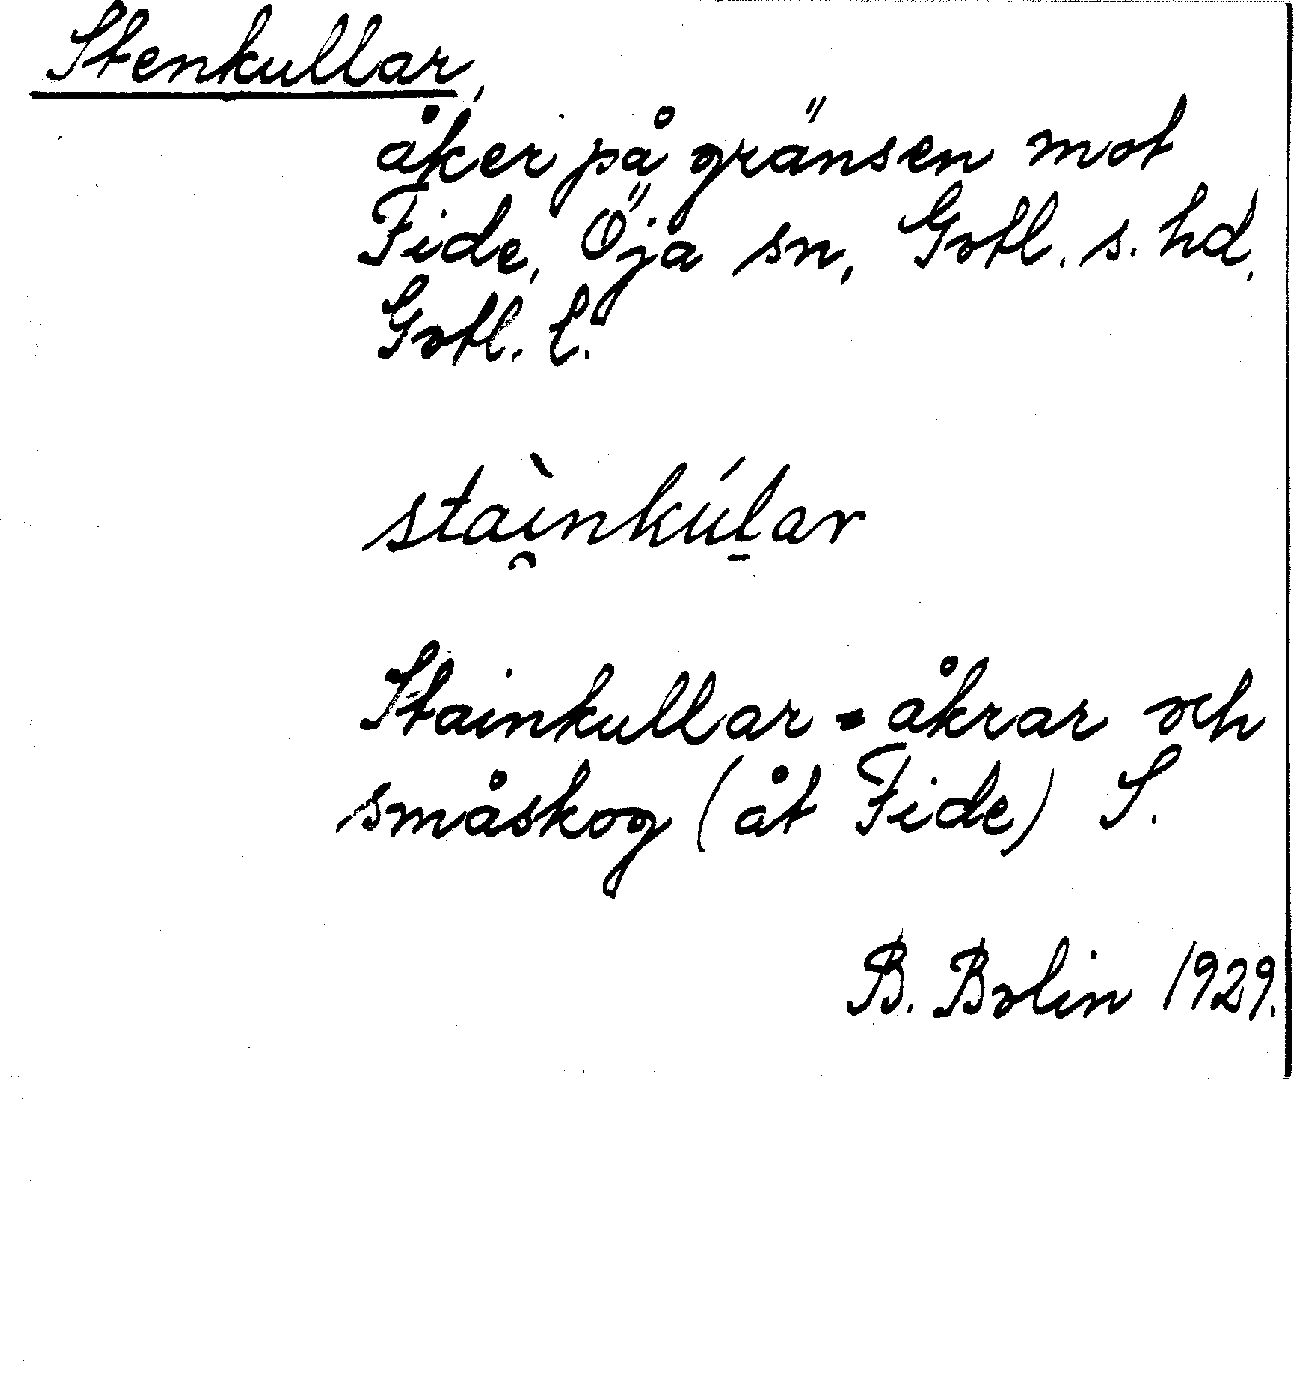 Stenkullar,
åker på gränsen mot
Fide, Öja sn, Gotl. s. hd,
Gotl. l.
staì̯nkúl̠ar
Stainkullar = åkrar och
småskog (åt Fide) S.
B. Bolin 1929.